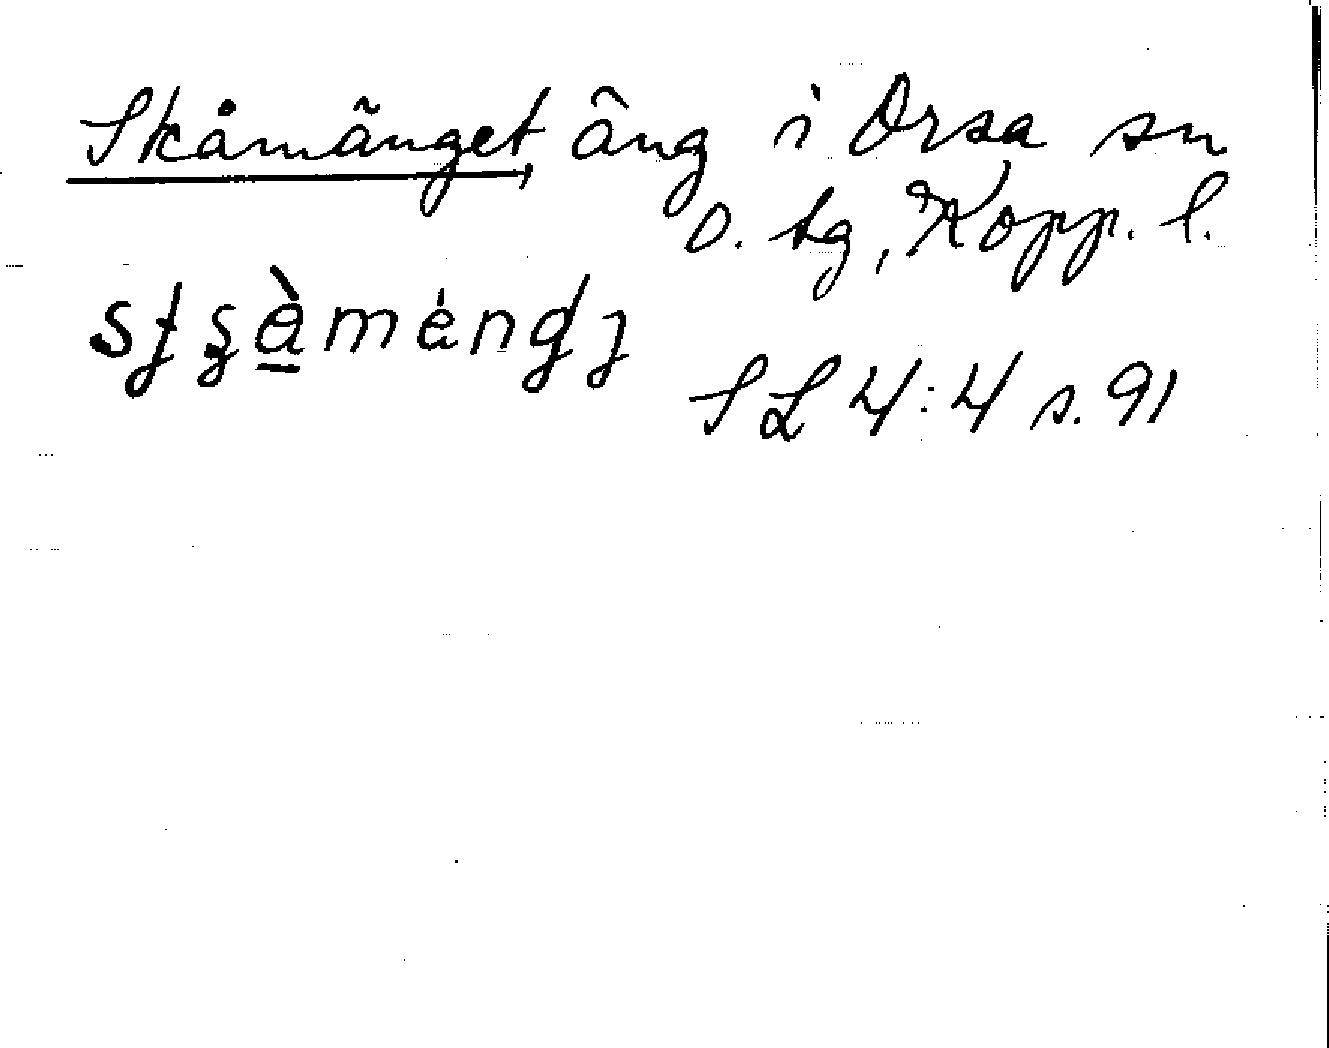 Skåmänget, äng i Orsa sn
O. tg, Kopp. l.
SL 4:4 s. 91